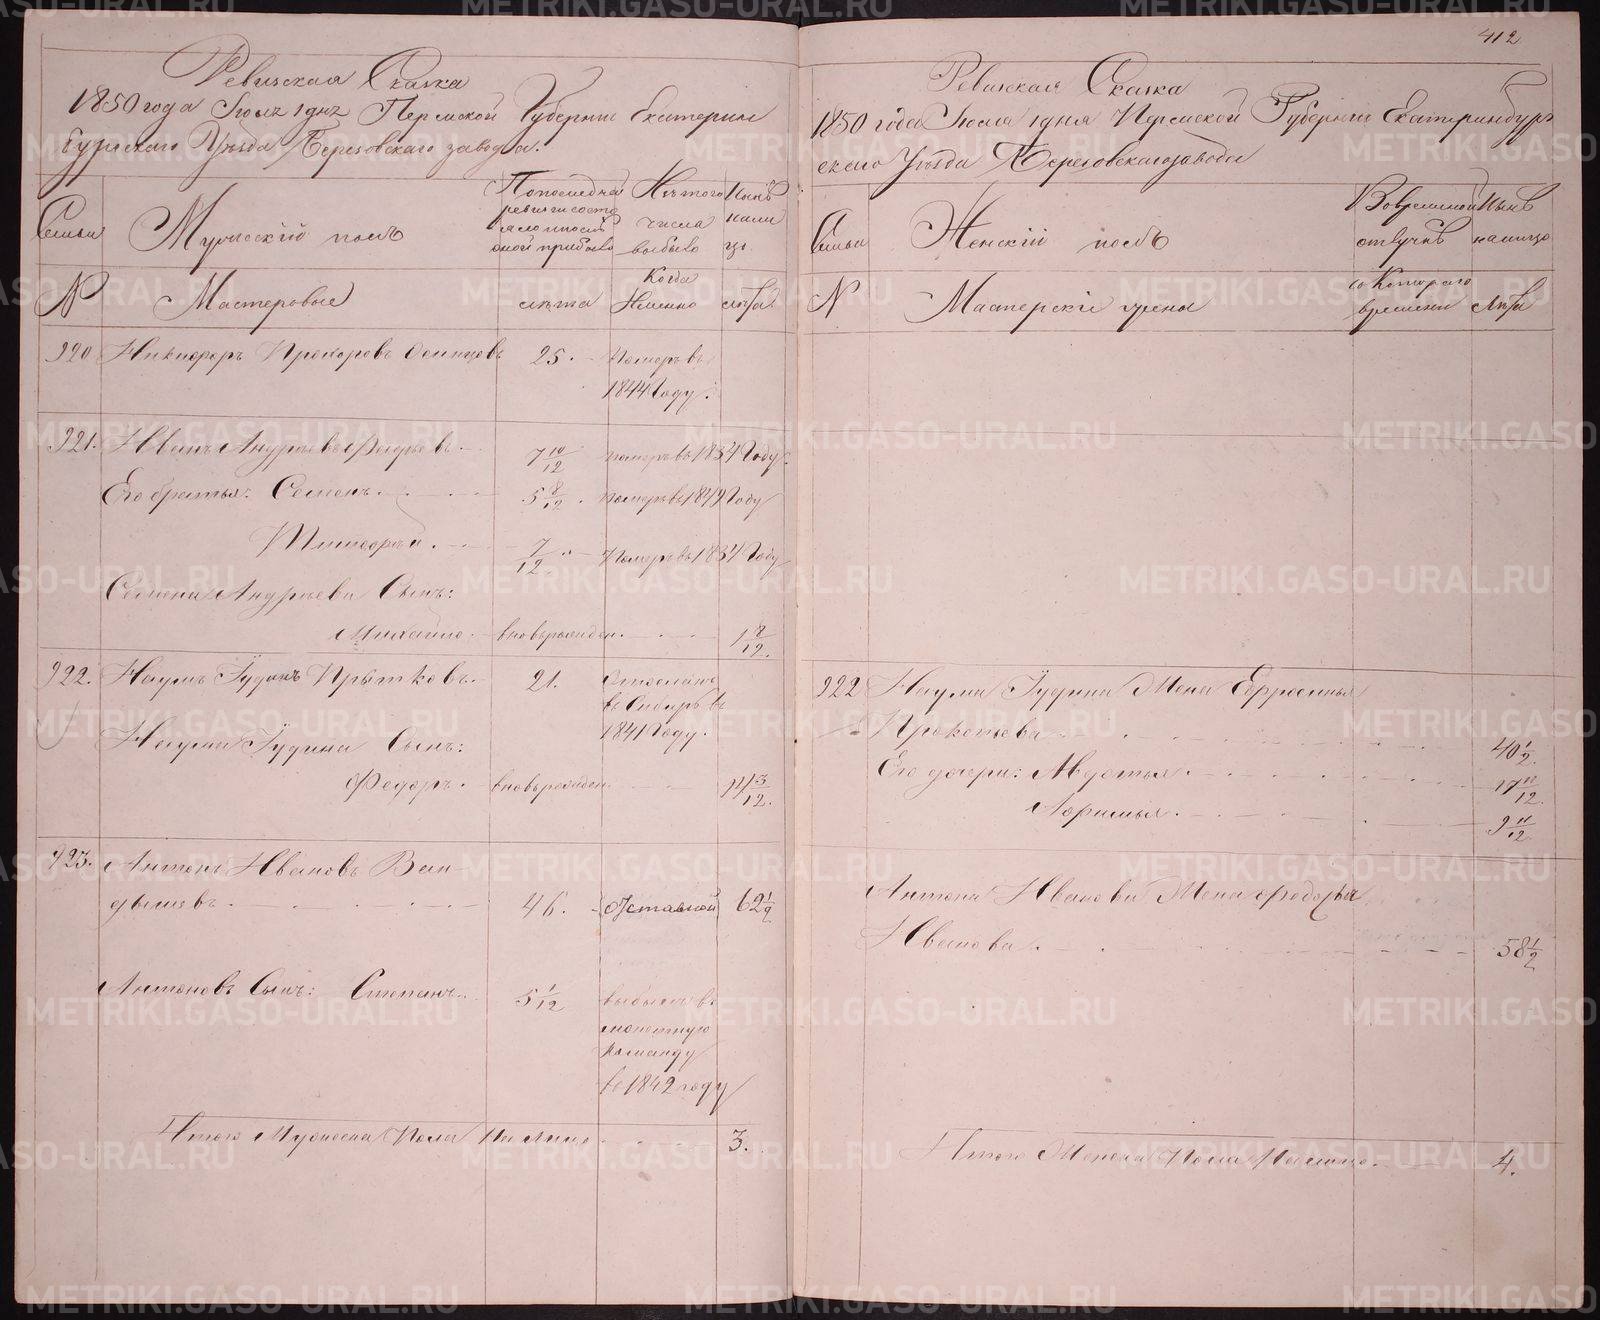 412
Ревизская Сказка
1850 года Іюля 1 дня Пермской Губерніи Екатерин
бургскаго Уѣзда Березовскаго завода.
Семьи
Мужескій полъ
По последней
ревизіи состо
яло и послѣ
оной прибыло
Изъ того
числа
выбыло
Нынѣ
нали
цо.
№
Мастеровые
лѣта
Когда
Именно
лѣта
920 Никифоръ Прохоровъ Осинцовъ 25. Померъ въ
1844 Году.
921. Иванъ Андреевъ 7 10/12 померъ въ 1834 Году.
Его братья: Семенъ. 5 8/12. померъ въ 1849 Году
Тимофей. 7/12 Померъ въ 1834 Году
Семена Андреева Сынъ:
Михайло. вновьрожден. 1 8/12.
922. Наумъ Іудинъ Прытковъ. 21. Отосланъ
въ Сибирь въ
1841 Году.
Наума Іудина Сынъ:
Федоръ. вновьрожден. 14 3/12.
923. Антонъ Ивановъ Ван
дышевъ. 46. Отставной 62 1/2
Антоновъ Сынъ: Степанъ. 5 1/12 выбылъ въ
монетную
Команду
въ 1842 году
Итого Мужеска Пола На лицо 3.
Ревизская Сказка
1850 года Іюля 1 дня Пермской Губерніи Екатеринбург
скаго Уѣзда Березовскаго завода
Семьи
Женскій полъ
Во временной
отлучкѣ
Нынѣ
налицо
№
Мастерскіе жены
съ Котораго
времени
лѣта
922 Наума Іудина Жена Ефросинья
Прокопьева 40 1/2.
Его дочери: Авдотья. 17 11/12.
Афимья. 9 11/12.
Антона Иванова Жена Федосья
Иванова. 58 1/2
Итого Женска Пола Налицо. 4.
METRIKI.GASO-URAL.RU